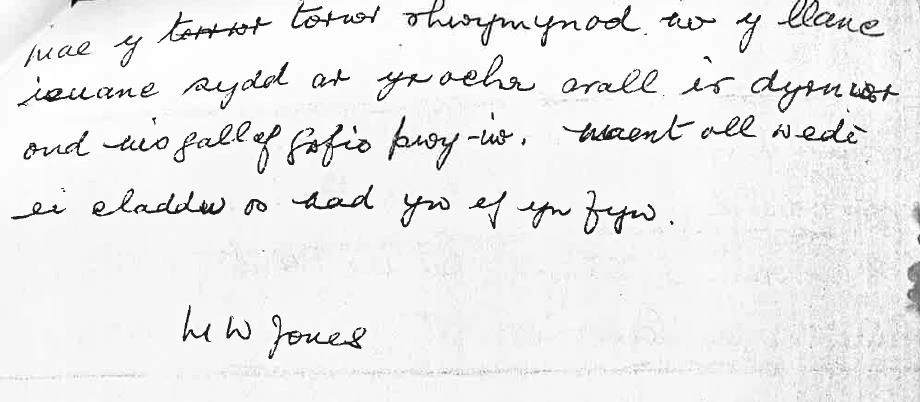 mae y torrwr torwr rhwymynod iw y llanc
ieuanc sydd ar yr ochr arall ir dyrnwr
ond nis gallef gofio pwy-iw. maent oll wedi
ei claddu os nad yw ef yn fyw.
M W Jones